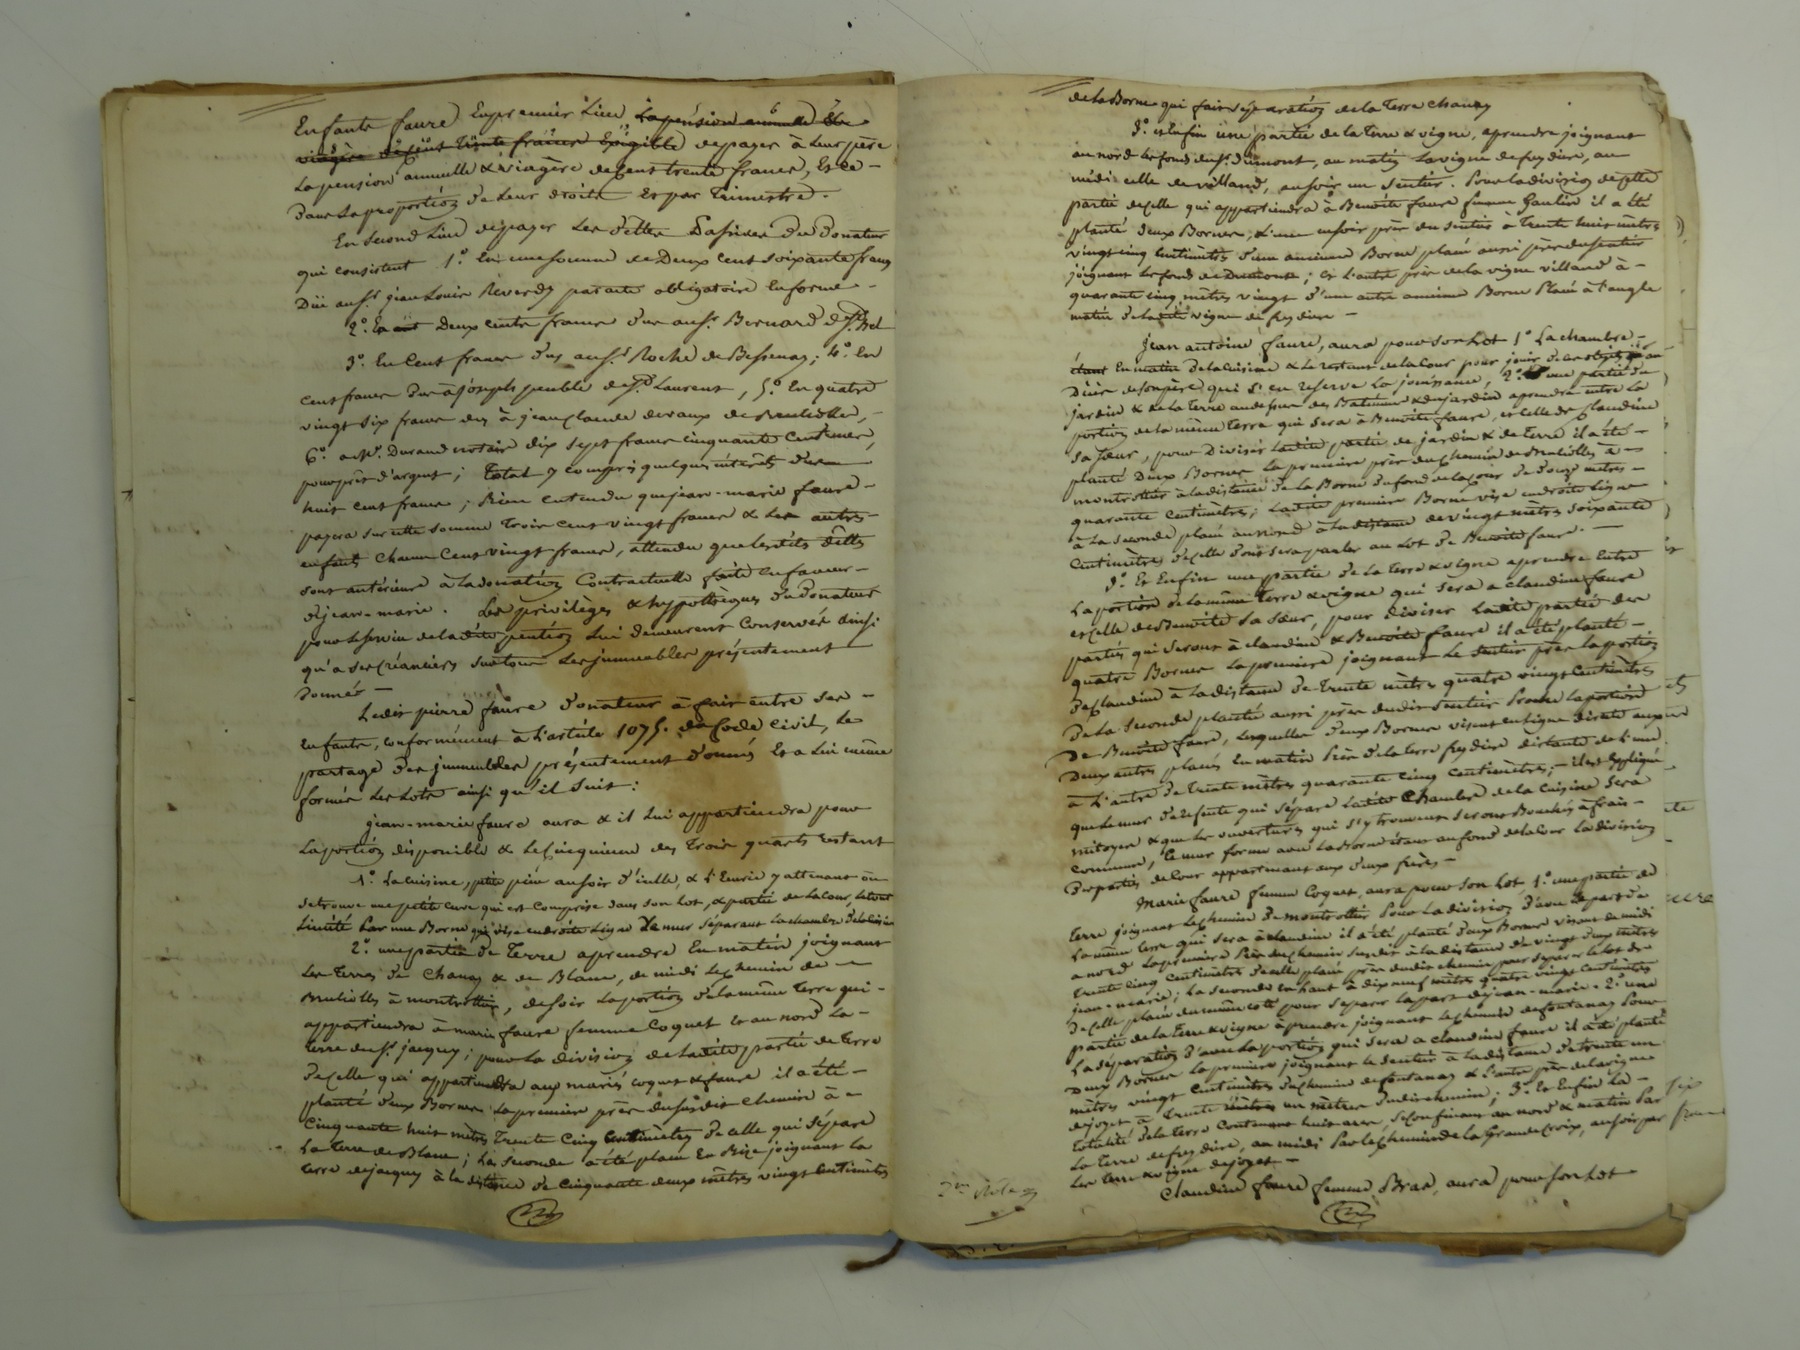 Enfants faure En premier Lieu La pension annuelle &
viagère de Cent Trente francs Exigible de payer à Leur père
La pension annuelle & viagère de Cent trente francs, Et ce -
dans La proportion de Leur droits Et par Trimestre.
En Second Lieu de payer Les dettes Passives du Donateur
qui consistent 1° En une somme de Deux cent soixante francs
Düe au Sr jean Louis Reverdy par acte obligatoire En forme -
2° En Deux cents francs dus au Sr. Bernard de St. Bel
3° En Cent francs dus au Sr. Roche de Bessenay; 4° En
cent francs dus à joseph peuble de St Laurent, 5° En quatre
vingt six francs dus à jean claude devaux de Brulioles, -
6° à Me. Durand notaire dix sept francs cinquante Centimes,
pour prêt d'argent; Total y compris quelques intérêts dus
huit cent francs; Bien entendu que jean-marie faure -
payera sur cette somme Trois cent vingt francs & Les autres
enfants Chacun Cent vingt francs, attendu que lesdites dettes
sont antérieures à La donation Contractuelle faite en faveur -
de jean-marie. Les privilèges & hypothèques du Donateur
pour Le Service de Ladite pention Lui demeurent Conservés ainsi
qu'a ses créanciers sur tous Les jmmeubles présentement
Donnés -
Ledit pierre faure Donateur à fait entre ses -
Enfants, conformément à L'article 1075. du Code Civil, Le
partage des jmmeubles présentement donnés Et a Lui même
formés Les Lots ainsi qu'il Suit:
jean-marie faure aura & il Lui appartiendra pour
La portion disponible & Le Cinquieme des Trois quarts restant
1° La cuisine, petite pièce au soir d'icelle, & L'Ecurie y attenant où
se trouve une petite cuve qui est Comprise dans son Lot, & partie de La Cour, Le tout
Limité Par une Borne qui vise en droite Ligne Le mur séparant La chambre de la cuisine
2° une partie de Terre a prendre En matin joignant
Les Terres de Chanay & de Blanc, de midi Le chemin de -
Brulioles à montrottier, de soir La portion de La même terre qui -
appartiendra à marie faure femme Coquet Et au nord La -
terre du Sr. jacquy; pour La division de Ladite partie de terre
de celle qui appartiendra aux mariés coquet & faure il a été -
planté deux Bornes La première près du susdit chemin à -
Cinquante huit mètres Trente Cinq Centimètres de celle qui sépare
La Terre de Blanc; La seconde a été placée En Bize joignant La
terre de jacquy à La distance de Cinquante deux mètres vingt Centimètres
de La Borne qui fait séparation de La Terre Chanay
3° et Enfin une partie de La Terre & vigne, a prendre joignant
au nord Le fond du Sr. Dumont, au matin La vigne de freydiere, au
midi celle de villand, au soir un Sentier. Pour La division de cette
partie de celle qui appartiendra à Benoite faure femme Gaulin il a été
planté deux Bornes, L'une au soir près du sentier à Trente huit mètres
vingt cinq Centimètres d'une ancienne Borne placée aussi près du sentier
joignant Le fond de Dumont; Et L'autre près de La vigne villand à -
quarante cinq mètres vingt d'une autre ancienne Borne Placée à L'angle
matin de Ladite vigne de freydiere -
jean antoine faure, aura pour son Lot 1° La chambre -
étant En matin de La cuisine & Le restant de La Cour pour jouir
Décès de son père qui s'en reserve La jouissance, 2° une partie du
jardin & de La Terre au dessus des Batiments & du jardin a prendre entre La
portion de La même Terre qui sera à Benoite faure, et celle de claudine
sa sœur, pour Diviser Ladite partie de jardin & de Terre il a été -
planté Deux Bornes La première près du chemin de Brulioles à -
montrottier à La distance de La Borne du fond de La Cour de Douze mètres -
quarante Centimètres; Ladite première Borne vise en droite Ligne
à La seconde placée au nord à La distance de vingt mètres soixante
Centimètres de celle dont sera parlé au Lot de Benoite faure. -
3° Et Enfin une partie de La terre & vigne a prendre Entre
La portion de La même Terre & vigne qui sera a claudine faure
et celle de Benoite sa sœur, pour diviser Ladite partie des
parties qui seront à claudine & Benoite faure il a été planté -
quatre Bornes La première joignant Le Sentier près La portion
de claudine à La distance de Trente mètres quatre vingt Centimètres
de La Seconde plantée aussi près dudit Sentier contre La portion
de Benoite faure, Lesquelles deux Bornes visent en Ligne directe aux
Deux autres placées En matin Près de La terre freydiere distante de L'une
à L'autre de Trente mètres quarante cinq Centimètres; - il est Expliqué
que Le mur de refente qui sépare Ladite Chambre de La Cuisine Sera
mitoyen & que Les ouvertures qui s'y trouvent seront Bouchées à frais -
communs, Le mur formé avec La Borne étant au fond de La Cour La division
Des parties de Cour appartenant aux deux frères -
Marie faure femme Coquet, aura pour son Lot, 1° une partie de
Terre joignant Le chemin de montrottier Pour La division d'avec La part de
La même terre qui sera à claudine il a été planté deux Bornes visant de midi
a nord La première Près du chemin susdit à La distance de vingt deux mètres
Trente Cinq Centimètres de celle placée près dudit chemin pour séparer Le Lot de
jean-marie; La seconde en haut à dix neuf mètres quatre vingt Centimètres
de celle placée du même côté pour séparer La part de jean-marie. 2° une
partie de La Terre & vigne à prendre joignant Le chemin de fontanay Pour
La séparation d'avec La portion qui sera a claudine faure il a été planté
Deux Bornes La première joignant Le Sentier à La distance de trente un
mètres vingt Centimètres du chemin de fontanay & L'autre près de La vigne
de joyet à Trente un mètres dudit chemin; 3° Et Enfin La -
Totalité de La terre Contenant huit ares, se Confinant au nord & matin Par
La Terre de freydiere, au midi Par Le chemin de La Grande Croix, au soir par
Les Terre & vigne de joyet -
Claudine faure femme Bras, aura pour son Lot
2me Rôle